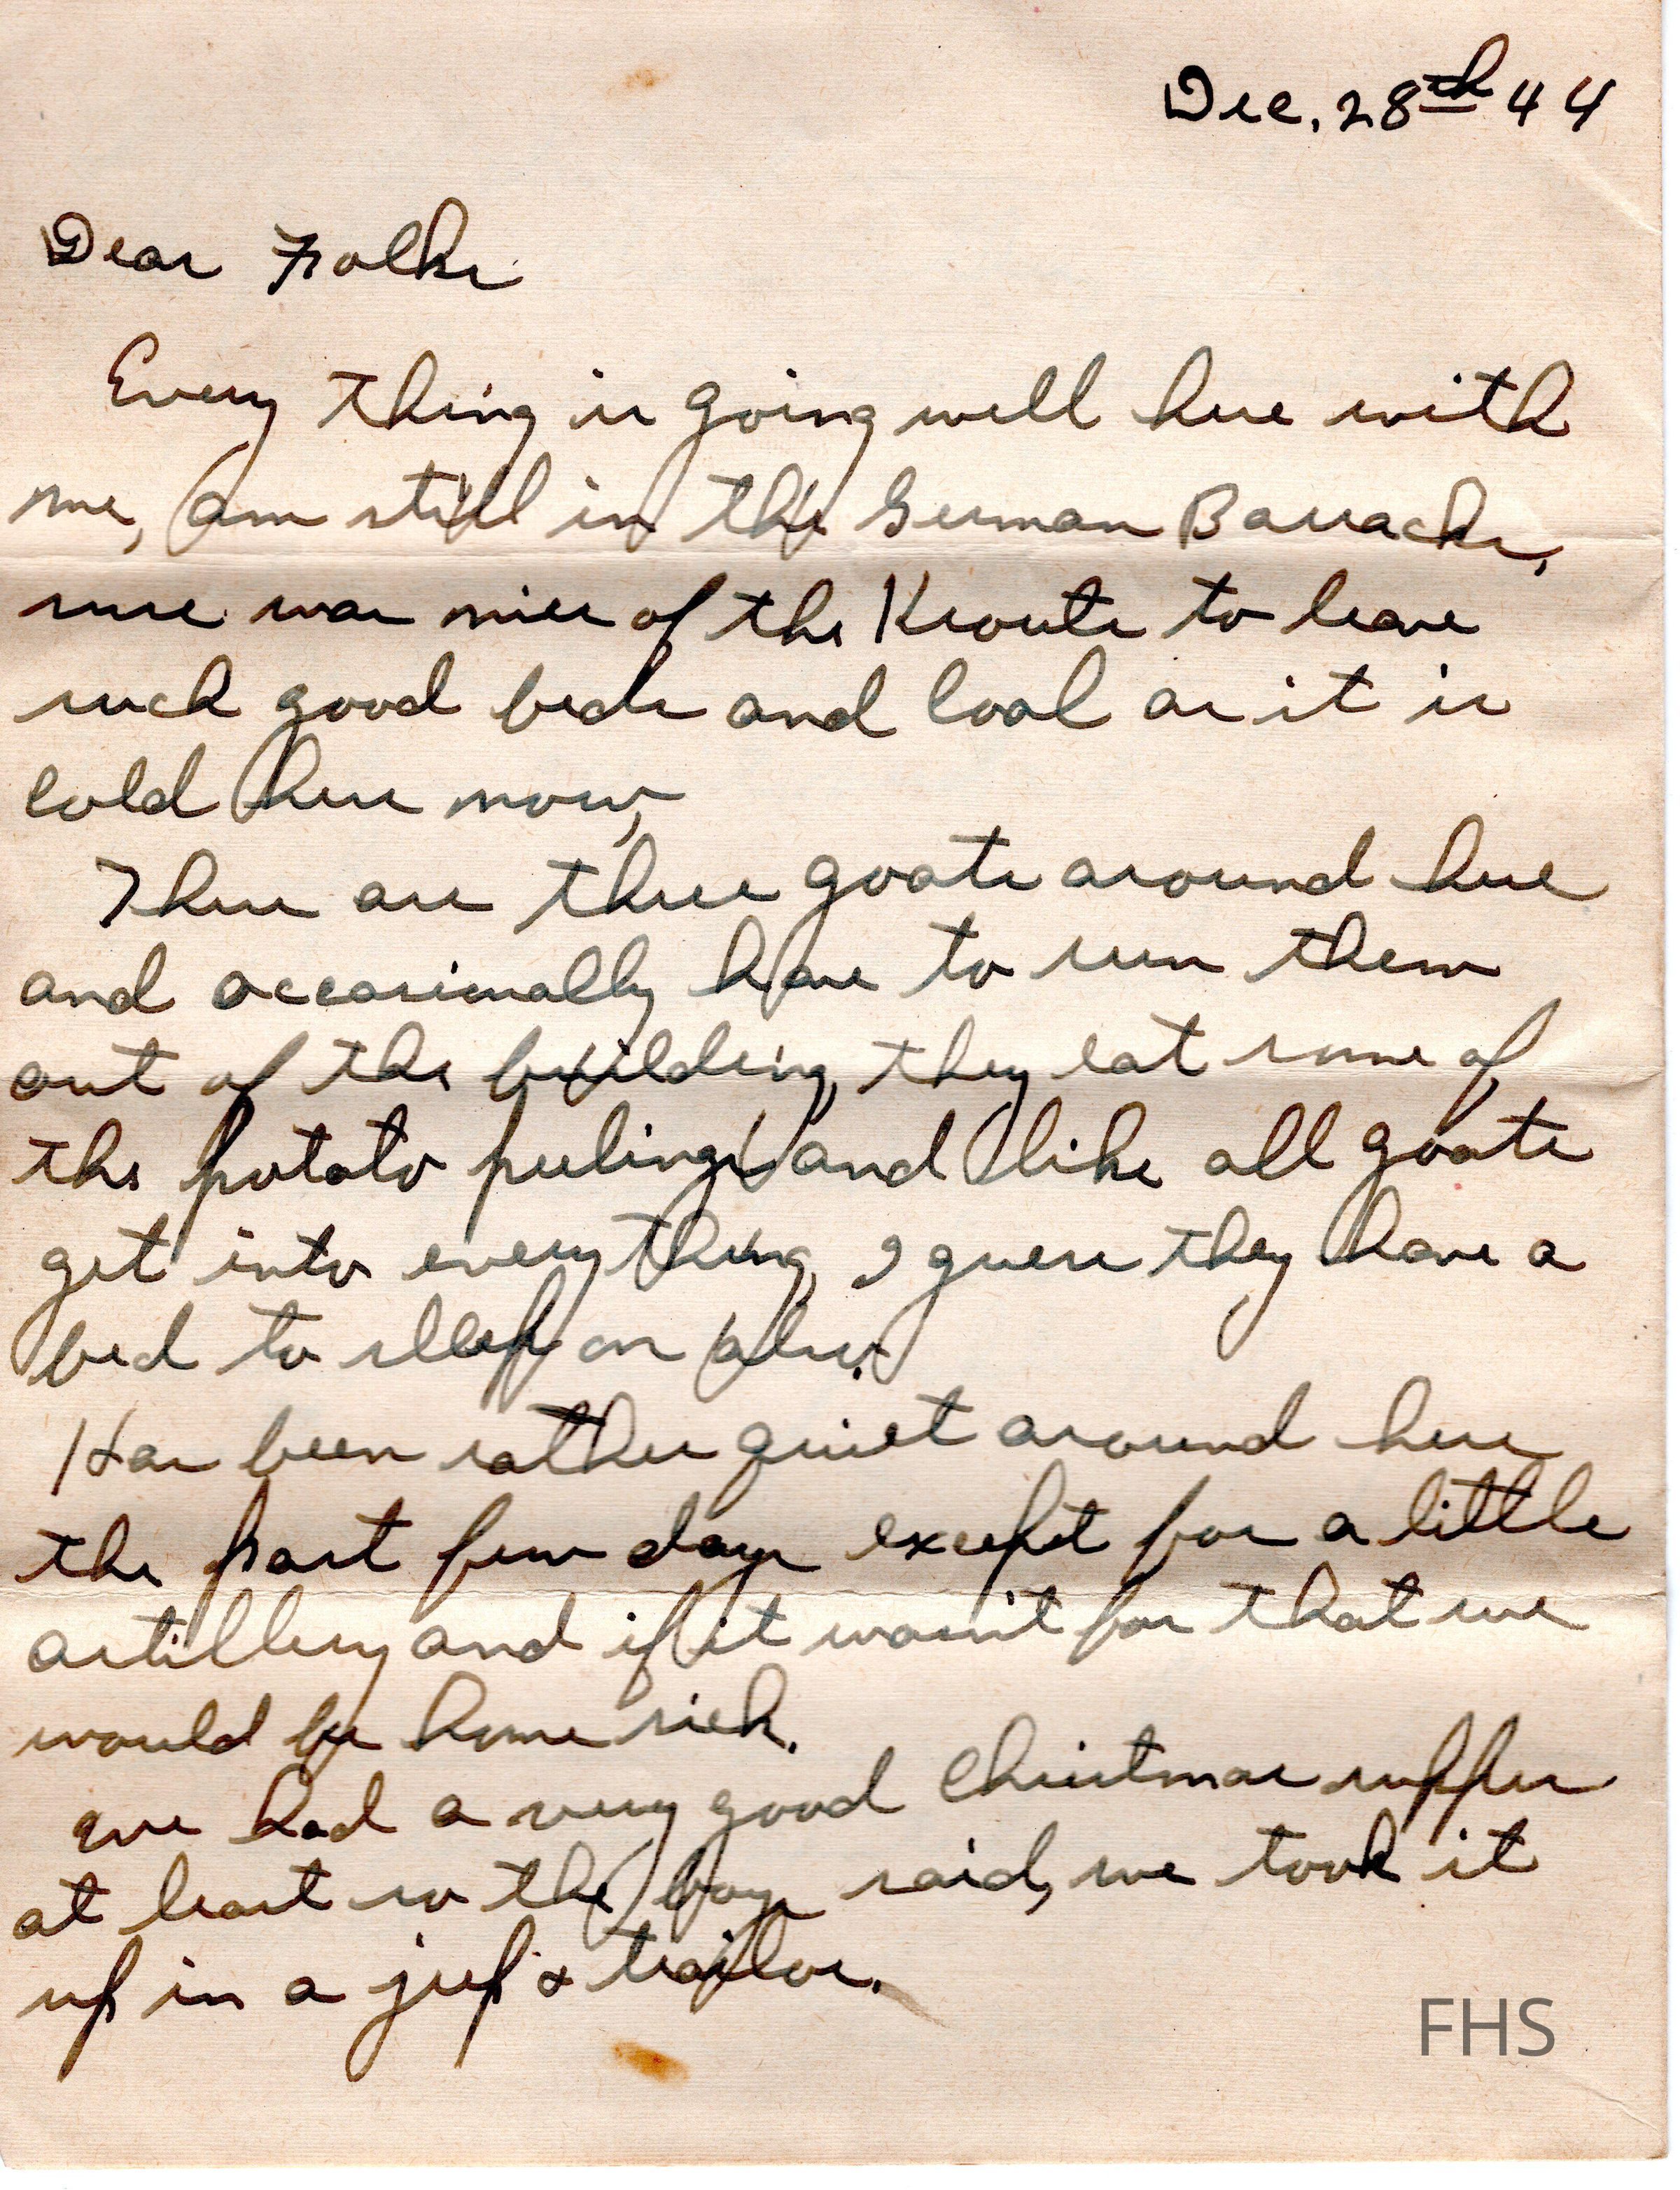 Dec. 28th 44
Dear Folks
Every thing is going well here with
me, am still in the German Barracks,
sure was nice of the Krouts to leave
such good beds and coal as it is
cold here now,
There are three goats around here
and occasionally have to run them
out of the building, they eat some of
the potato peelings and like all goats
get into everything, I guess they have a
bed to sleep on also.
Has been rather quiet around here
the past few days except for a little
artillery and if it wasn't for that we
would be home sick.
We had a very good Christmas supper
at least so the boys said, we took it
up in a jeep & trailor.
FHS